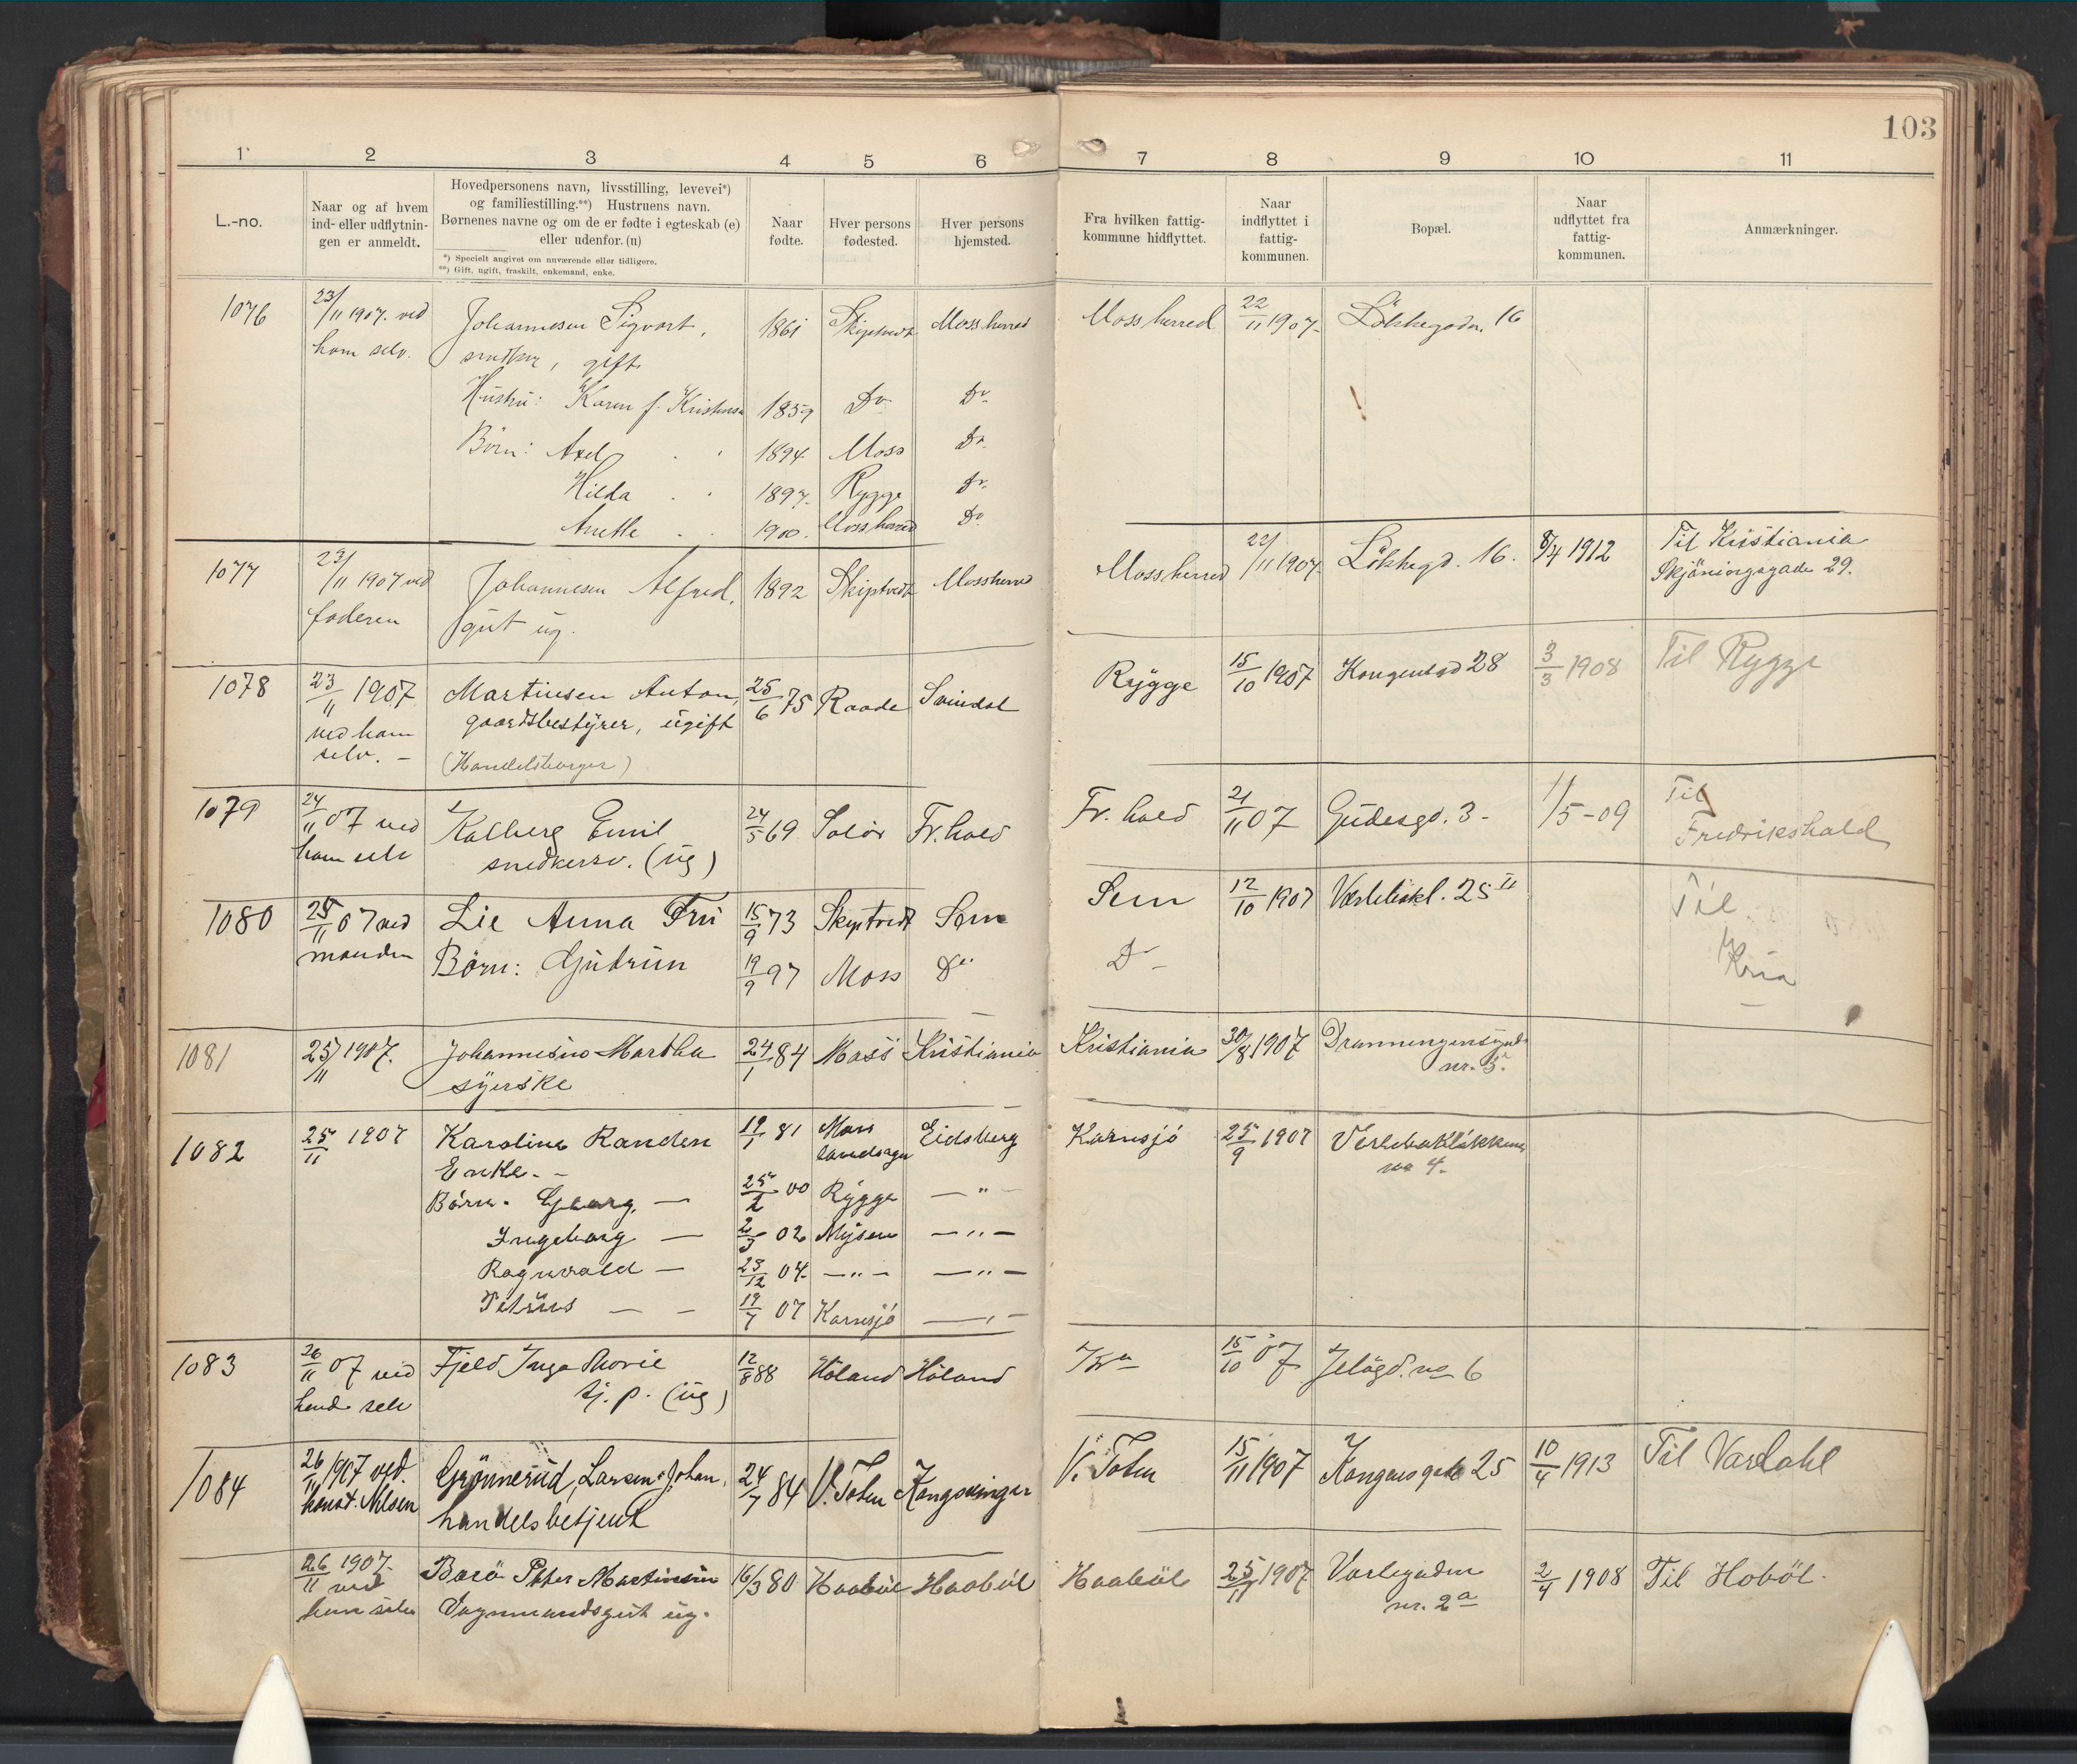 103
1 2 3 4 5 6 7 8 9 10 11
L.-no.
Naar og af hvem
ind- eller udflytnin-
gen er anmeldt.
Hovedpersonens navn, livsstilling, levevei*)
og familiestilling.**) Hustruens navn.
Børnenes navne og om de er fødte i egteskab (e)
eller udenfor. (u)
*) Specielt angivet om nuværende eller tidligere.
**) Gift, ugift, fraskilt, enkemand, enke.
Naar
fødte.
Hver persons
fødested.
Hver persons
hjemsted.
Fra hvilken fattig-
kommune hidflyttet.
Naar
indflyttet i
fattig-
kommunen.
Bopæl.
Naar
udflyttet fra
fattig-
kommunen.
Anmærkninger.
1076 23/11 1907. ved Johannesen Sigvart, 1861 Skiptvedt Moss herred Moss herred 22/11 1907. Lökkegadn. 16
ham selv. snedker, gift
Hustru: Karen f. Kristensen 1859 Do Do
Börn: Axel 1894 Moss Do
Hilda 1897. Rygge Do
Anette 1900. Moss herred Do
1077 23/11 1907 ved Johannesen Alfred, 1892 Skiptvedt Mossherred Moss herred 22/11 1907. Lökkegd. 16. 8/4 1912 Til Kristiania
faderen gut ug. Skjöningsgade 29.
1078 23/11 1907 Martinsen Anton, 25/6 75 Raade Svindal Rygge 15/10 1907 Kongensgd 28 3/3 1908 Til Rygge
ved ham gaardsbestyrer, ugift
selv. — (Handelsborger)
1079 24/11 07 ved Kalberg Emil 24/5 69 Solör Fr. hald Fr. hald 21/11 07 Gudesgd. 3 - 1/5-09 Til
ham selv snedkersv. (ug) Fredrikshald
1080 25/11 07 ved Lie Anna Fru 15/9 73 Skiptvedt Sem Sem 12/10 1907 Værlebakl. 25 II Til
manden Börn: Gudrun 19/9 97 Moss Do Do Kria
1081 25/11 1907. Johannesen Martha 24/1 84 Moss Kristiania Kristiania 30/8 1907 Dronningensgade
syerske nr. 5.
1082 25/11 1907 Karoline Randen 19/1 81 Moss Eidsberg Kornsjö 25/9 1907 Verlebakløkken
Enke. - landsogn no 4.
Börn. Georg, — 25/2 00 Rygge — " —
Ingeborg — 2/3 02 Mysen — " —
Ragnvald — 23/12 04 — " — — " —
Petrus — 19/7 07 Kornsjö — " —
1083 26/11 07 ved Fjeld Inga Marie 12/8 88 Höland Höland Kra 15/10 07 Jelögd. no 6
hende selv tj. p. (ug)
1084 26/11 1907 ved. Grönnerud, Larsen, Johan, 24/7 84 V. Toten Kongsvinger V. Toten 15/11 1907 Kongensgade 25 10/4 1913 Til Vardahl
konst. Nilsen handelsbetjent
26/11 1907. Barö Peter Martinsen 16/3 80 Haaböl Haaböl Haaböl 25/11 1907 Varlegaden 2/4 1908 Til Hoböl.
ved
ham selv Vognmandsgut ug. nr. 2a